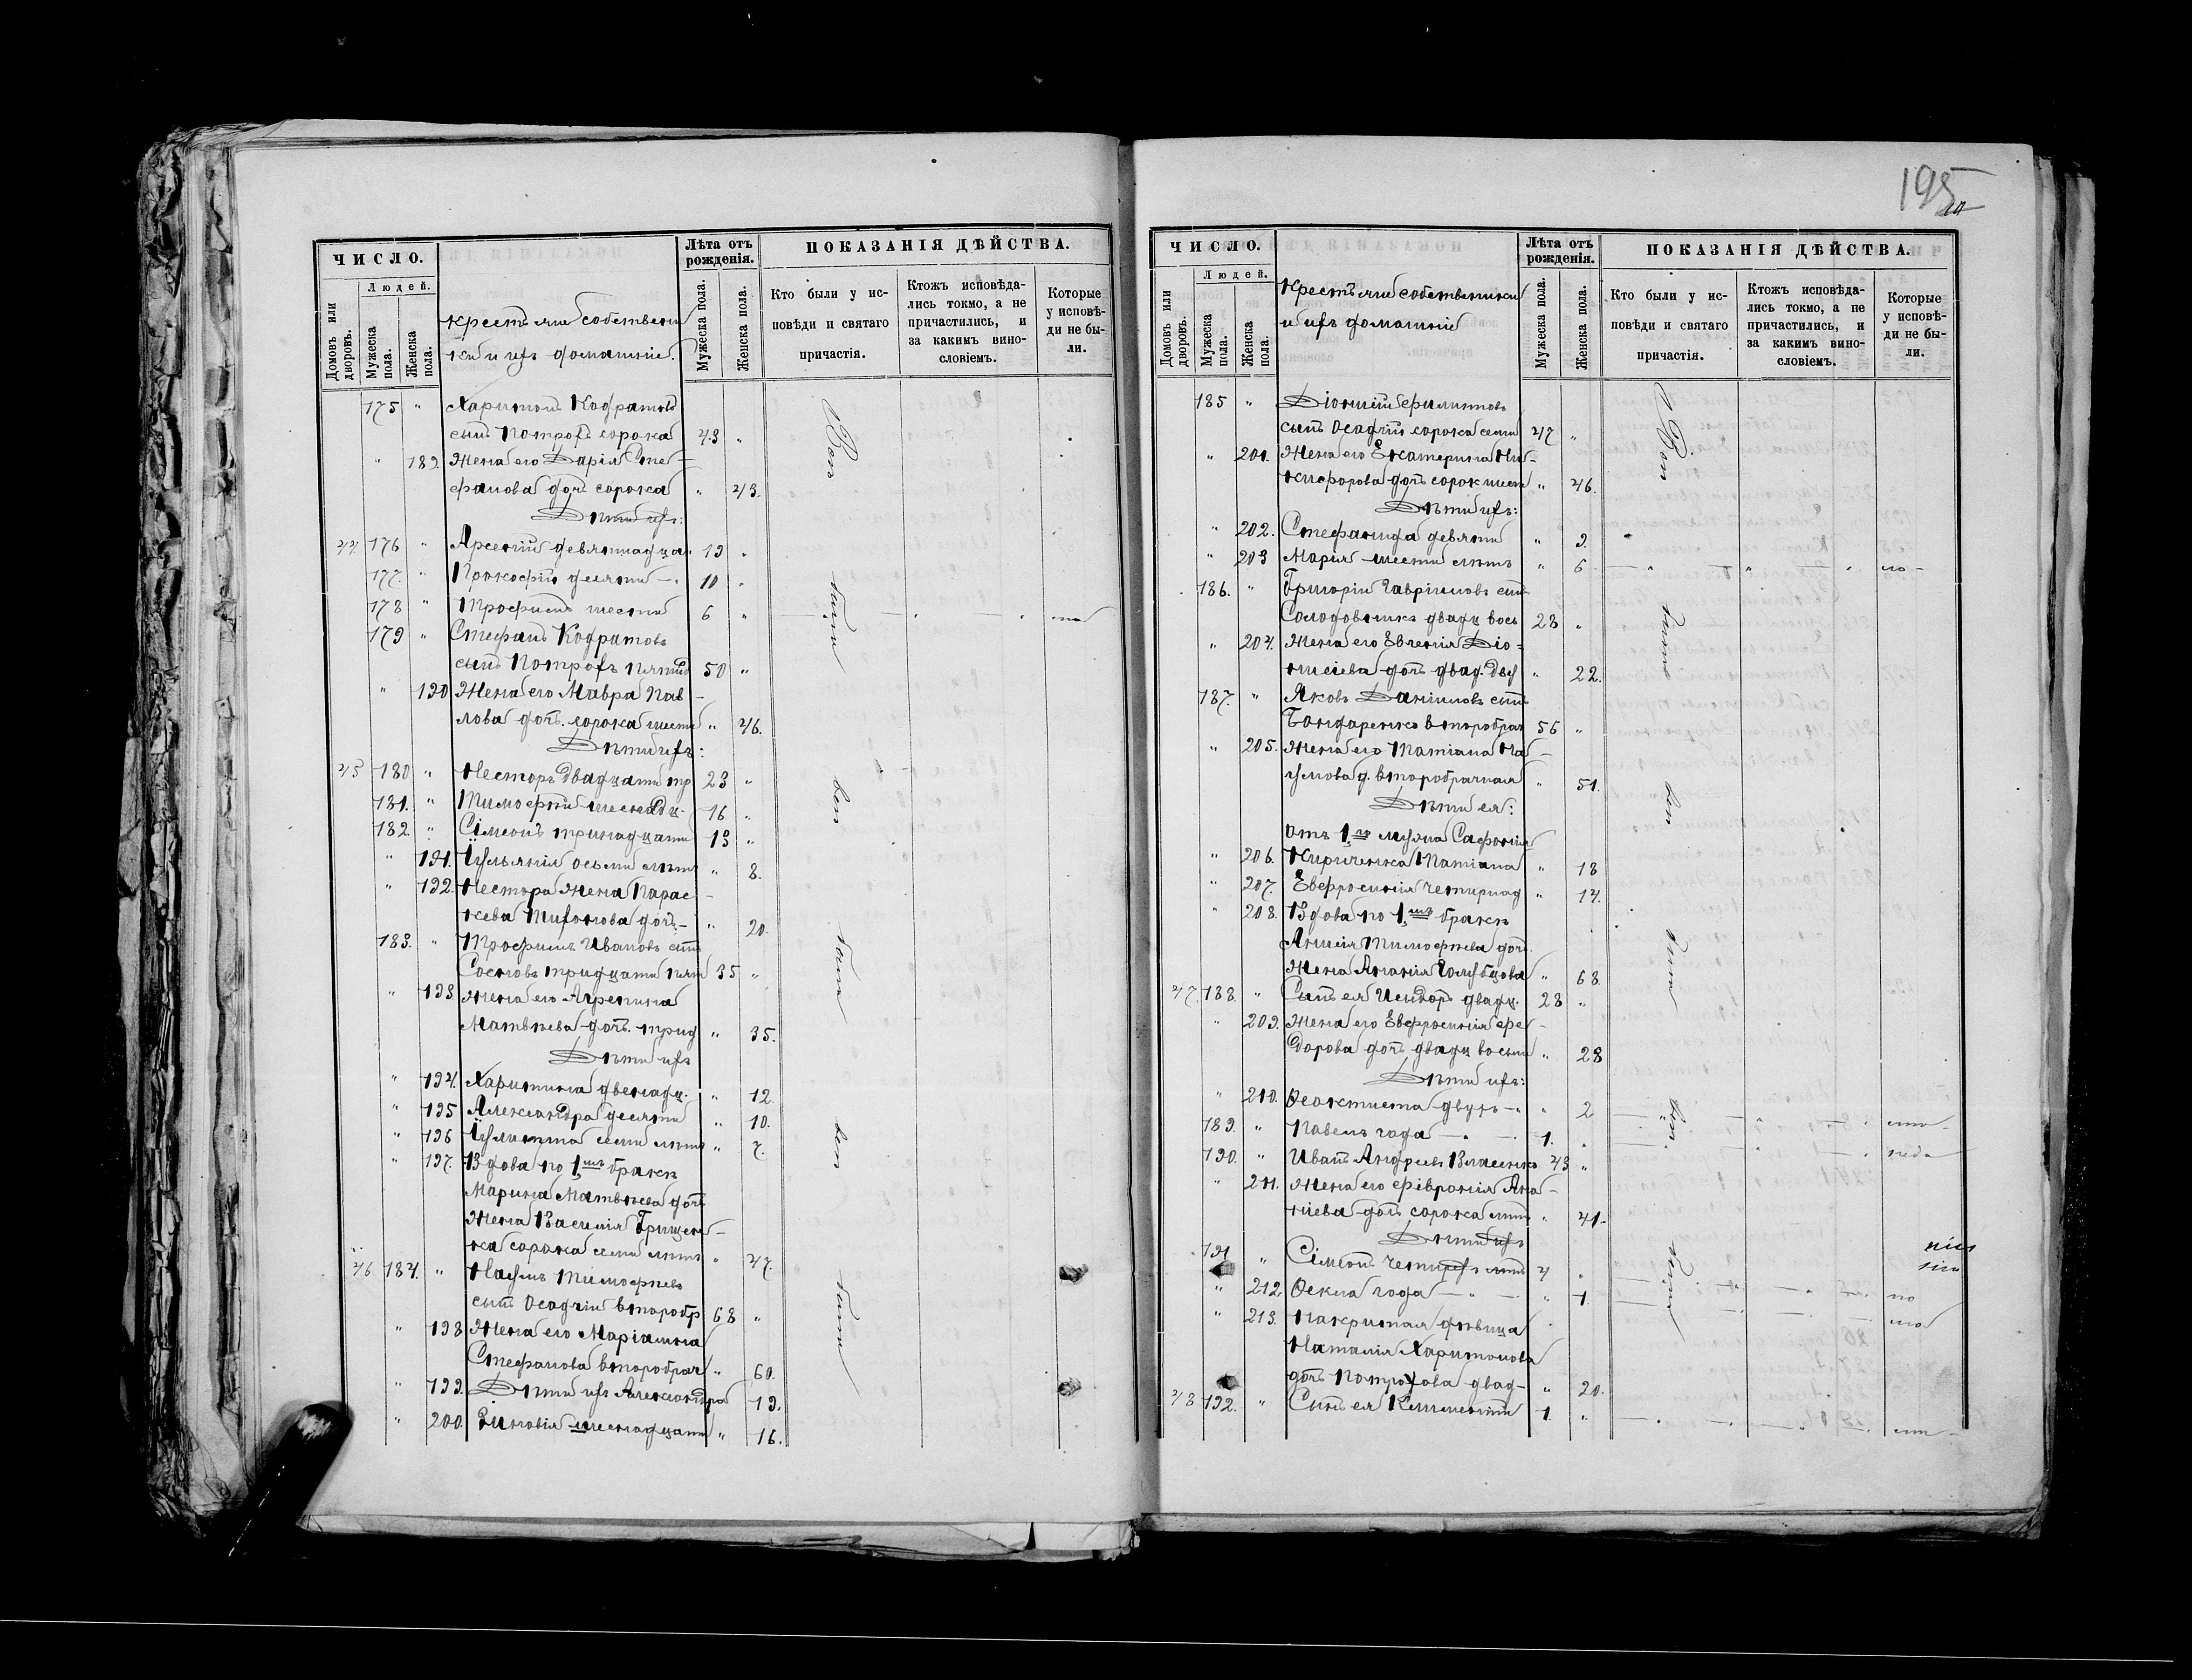 195
ЧИСЛО.
Людей.
Домовъ или дворовъ.
Мужеска пола.
Женска пола.
Лѣта отъ рожденія.
Мужеска пола.
Женска пола.
ПОКАЗАНІЯ ДѢЙСТВА.
Кто были у исповѣди и святаго причастія.
Ктожъ исповѣдались токмо, а не причастились, и за какимъ винословіемъ.
Которые у исповѣди не были.
Крестьяне собственни
ки и ихъ домашніе.
175 " Харитонъ Кодратовъ
сынъ Потрохъ сорока 43 "
" 189 Жена его Дарія Сте-
фанова дочь сорока " 43.
Дѣти ихъ:
44 176 " Арсеній девятнадца 19 "
177. " Прокофій десяти 10 "
178 " Трофимъ шести 6 "
179 " Стефанъ Кодратовъ
сынъ Потрохъ 50 "
" 190 Жена его Мавра Пав-
лова дочь сорока шести " 46.
Дѣти ихъ:
45 180 " Несторъ двадцати тр 23 "
181. " Тимофей шеснадц. 16 "
182 " Сімеонъ тринадцати 13 "
" 191. Іульянія осьми лѣтъ " 8.
" 192. Нестора жена Парас-
кева Тихонова дочь " 20.
183. " Трофимъ Ивановъ сынъ
тридцати пят 35 "
" 193. Жена его Агрепина
Матвѣева дочь трид " 35.
Дѣти ихъ
" 194. Харитина двенадц. " 12.
" 195 Александра десяти " 10.
" 196 Іулитта семи лѣтъ " 7.
" 197. Вдова по 1мъ бракѣ
Марина Матвѣева дочь
Жена Василія Грицен-
ка сорока семи лѣтъ " 47.
46 184. " Наумъ Тимофѣевъ
сынъ Осадчій второбр 68 "
" 198 Жена его Маріамна
Стефанова второбрач " 60.
" 199. Дѣти ихъ Александра 19.
" 200. Зіновія шеснадцати " 16.
Вси
тіи
ЧИСЛО.
Людей.
Домовъ или дворовъ.
Мужеска пола.
Женска пола.
Лѣта отъ рожденія.
Мужеска пола.
Женска пола.
ПОКАЗАНІЯ ДѢЙСТВА.
Кто были у исповѣди и святаго причастія.
Ктожъ исповѣдались токмо, а не причастились, и за какимъ винословіемъ.
Которые у исповѣди не были.
Крестьяне собственники
и ихъ домашніе
185 " Діонисій Филиповъ
сынъ Осадчій сорока семи 47 "
" 201. Жена его Екатерина Ни-
кифорова дочь сорок шест " 46.
Дѣти ихъ:
" 202. Стефанида девяти " 9.
" 203 Марія шести лѣтъ " 6
186. " Григорій Гавріиловъ сын
двадц вось 28 "
" 204. Жена его Евгенія Діо-
нисіева дочь двад. дву " 22.
187. " Яковъ Даніиловъ сынъ
Бондаренко второбрач 56 "
" 205. Жена его Татіана На-
умова д. второбрачная " 51.
Дѣти ея:
отъ 1го мужа Сафонія
" 206. Кириченка Татіана " 18
" 207. Евфросинія четырнад " 14.
" 208. Вдова по 1мъ бракѣ
Анисія Тимофѣева дочь
Жена Ананія Голубцова " 68.
47. 188. " Сынъ ея двадц. 28 "
" 209. Жена его Евфросинія Фе-
дорова дочь двадц восьми " 28
Дѣти ихъ:
" 210. Феоктиста двухъ " 2
189. " Павелъ года 1. "
190. " Иванъ Андреевъ Власенко 43 "
" 211. Жена его Февронія Ана-
ніева дочь сорока лѣтъ " 41.
Дѣти ихъ
191 " Сімеонъ четырехъ лѣтъ 4 "
" 212 Фекла года " 1.
" 213. Покритая дѣвица
Наталія Харитонова
дочь Потрохова двад- " 20.
48 192. " Сынъ ея Климентій 1. "
Вси